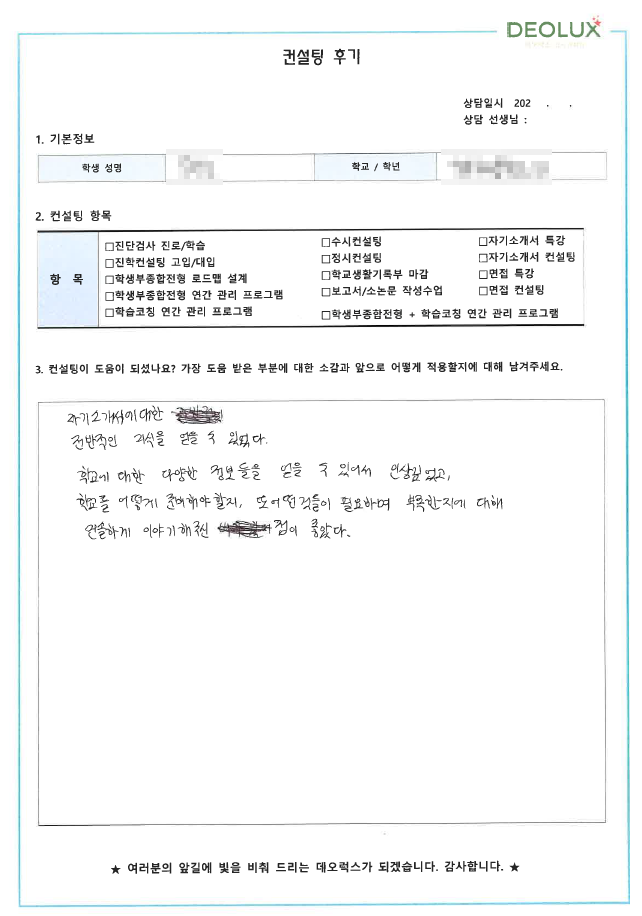 DEOLUX
컨설팅 후기
상담일시 202 . .
상담 선생님 :
1. 기본정보
학생 성명 학교 / 학년
2. 컨설팅 항목
항 목
□진단검사 진로/학습 □수시컨설팅 □자기소개서 특강
□진학컨설팅 고입/대입 □정시컨설팅 □자기소개서 컨설팅
□학생부종합전형 로드맵 설계 □학교생활기록부 마감 □면접 특강
□학생부종합전형 연간 관리 프로그램 □보고서/소논문 작성수업 □면접 컨설팅
□학습코칭 연간 관리 프로그램 □학생부종합전형 + 학습코칭 연간 관리 프로그램
3. 컨설팅이 도움이 되셨나요? 가장 도움 받은 부분에 대한 소감과 앞으로 어떻게 적용할지에 대해 남겨주세요.
자기소개서에 대한
전반적인 지식을 얻을 수 있었다.
학교에 대한 다양한 정보들을 얻을 수 있어서 인상깊었고,
학교를 어떻게 준비해야 할지, 또 어떤것들이 필요하며 부족한지에 대해
진솔하게 이야기해주신 점이 좋았다.
★ 여러분의 앞길에 빛을 비춰 드리는 데오럭스가 되겠습니다. 감사합니다. ★